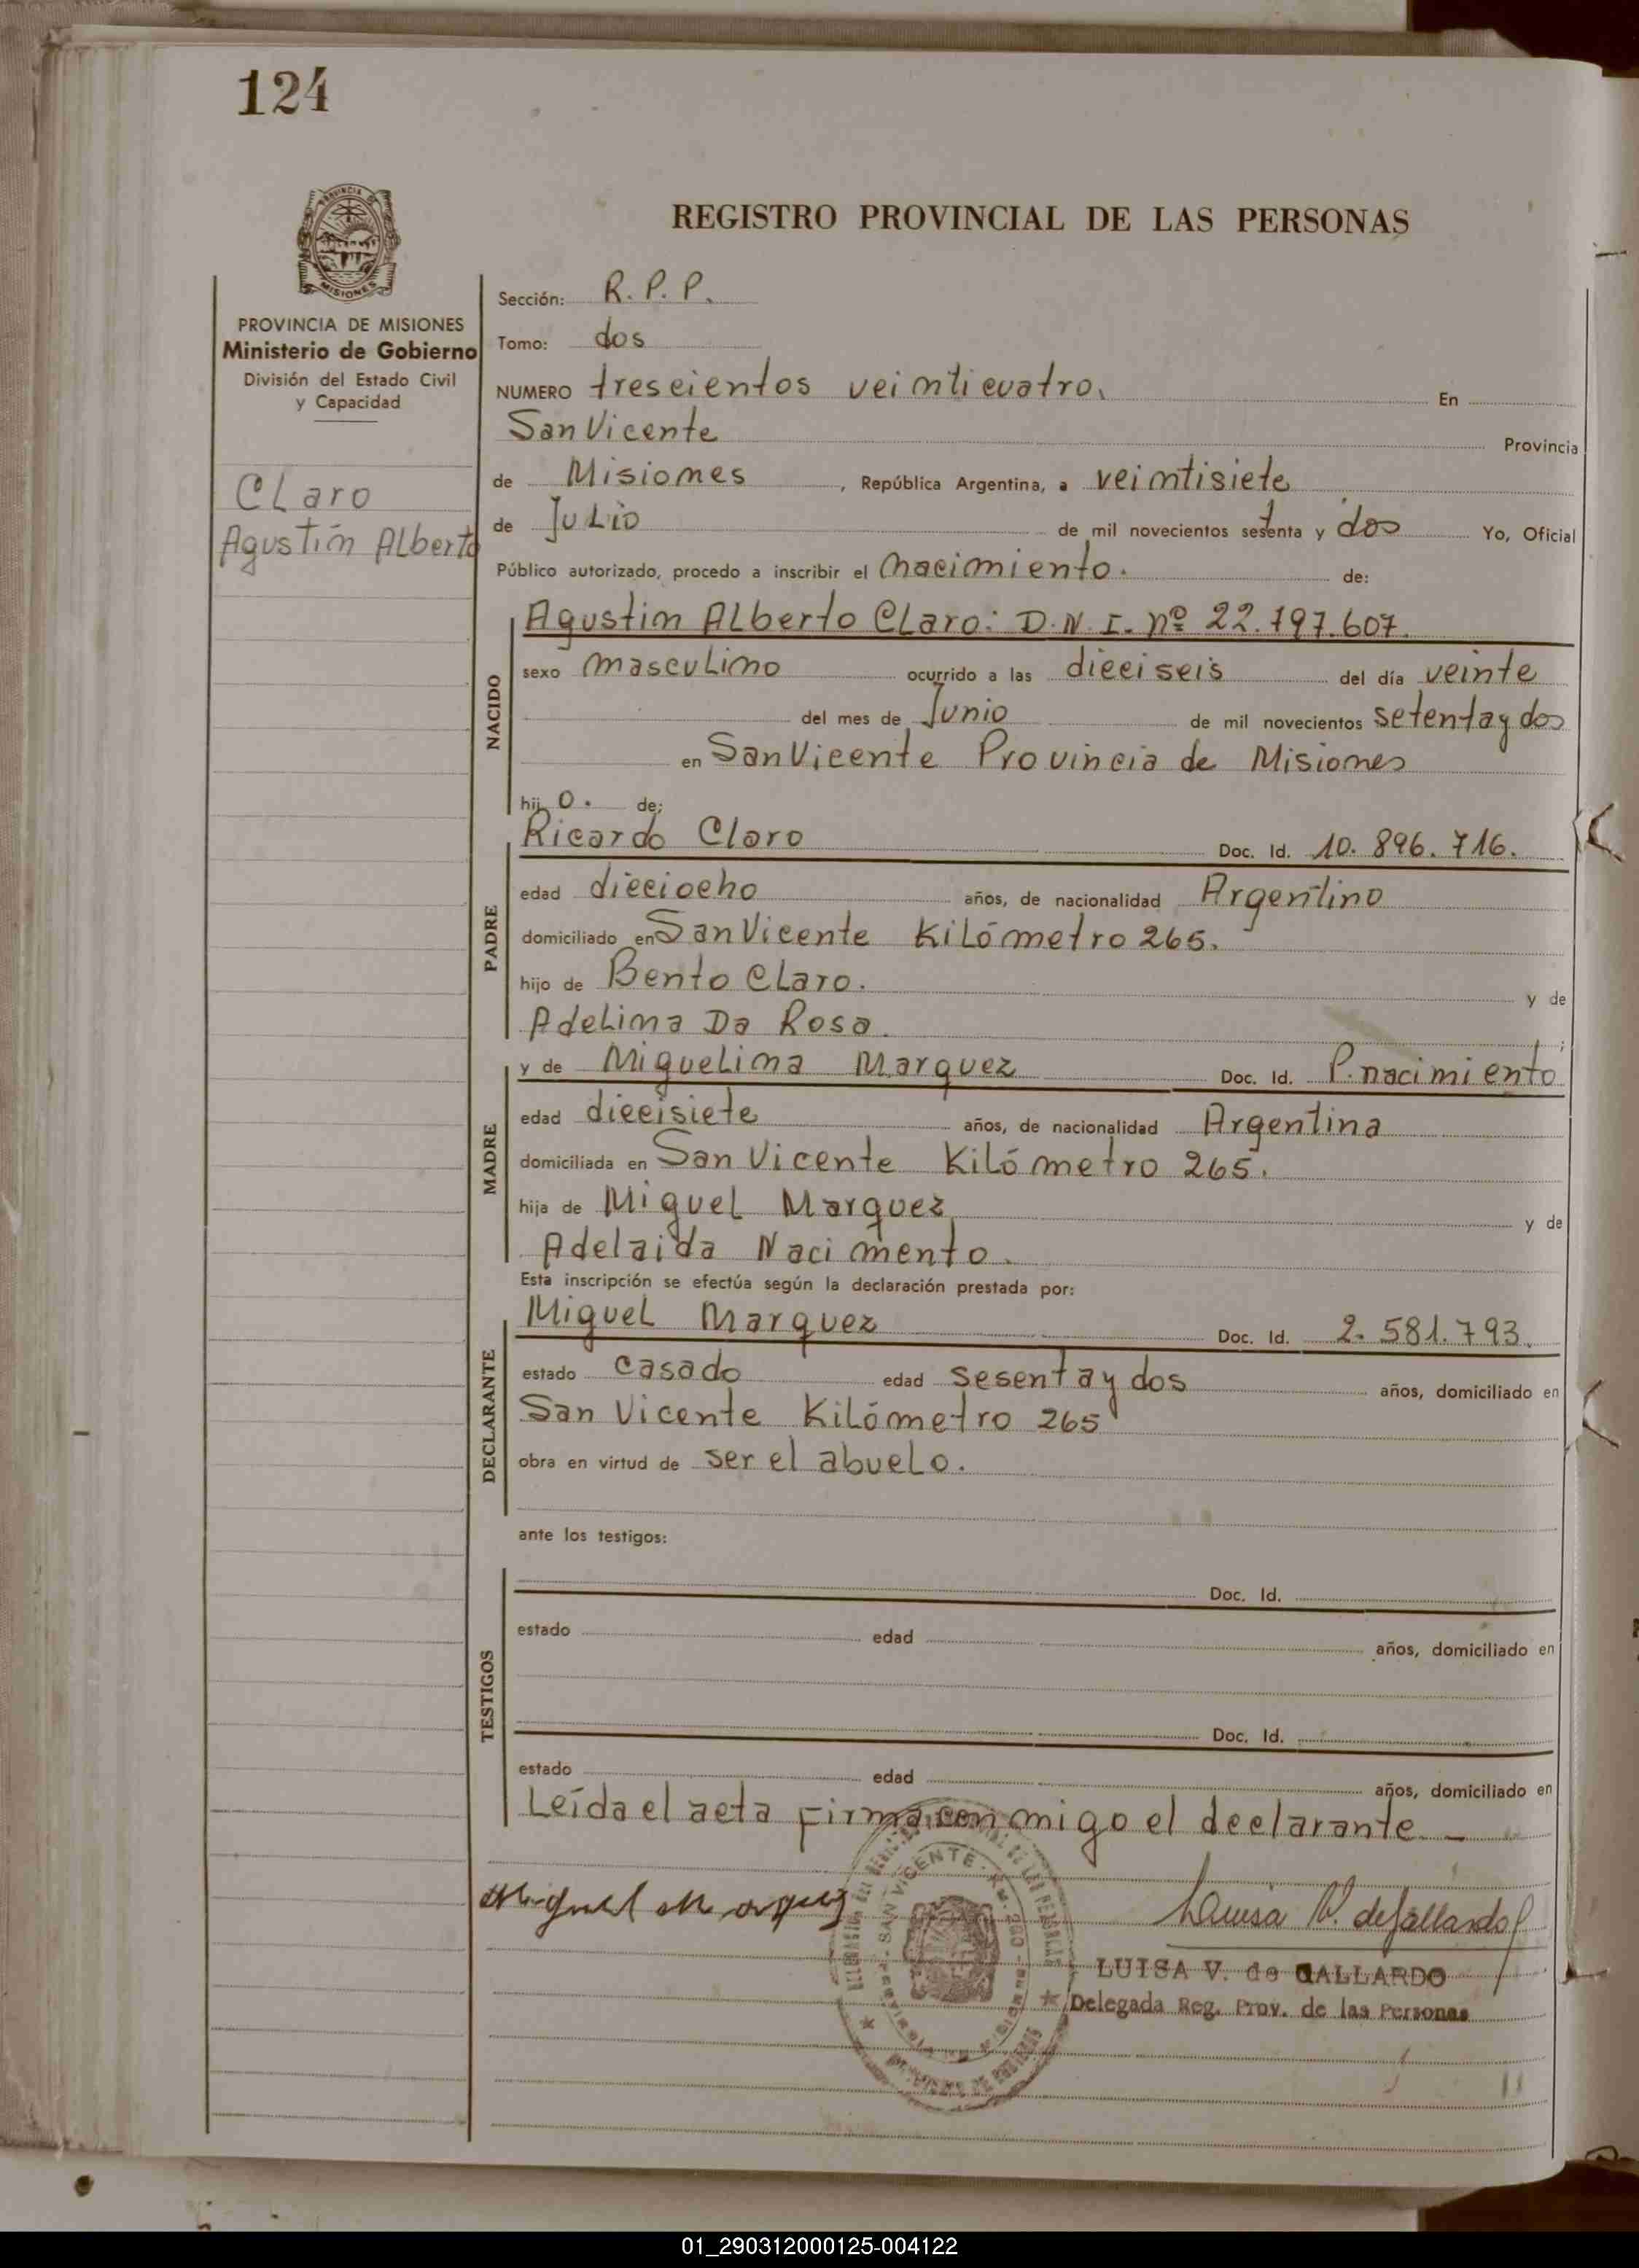 124
PROVINCIA
MISIONES
REGISTRO PROVINCIAL DE LAS PERSONAS
PROVINCIA DE MISIONES
Ministerio de Gobierno
División del Estado Civil
y Capacidad
Claro
Agustín Alberto
Sección: R. P. P.
Tomo: dos
NUMERO trescientos veinticuatro. En
San Vicente Provincia
de Misiones, República Argentina, a veintisiete
de Julio de mil novecientos setenta y dos Yo, Oficial
Público autorizado, procedo a inscribir el nacimiento. de:
NACIDO
Agustin Alberto Claro: D.N.I. nº 22.197.607.
sexo masculino ocurrido a las dieciseis del día veinte
del mes de Junio de mil novecientos setenta y dos
en San Vicente Provincia de Misiones
hijo. de:
PADRE
Ricardo Claro Doc. Id. 10.896.716.
edad dieciocho años, de nacionalidad Argentino
domiciliado en San Vicente Kilómetro 265.
hijo de Bento Claro. y de
Adelina Da Rosa.
MADRE
y de Miguelina Marquez Doc. Id. P. nacimiento
edad diecisiete años, de nacionalidad Argentina
domiciliada en San Vicente Kilómetro 265.
hija de Miguel Marquez y de
Adelaida Nacimento.
Esta inscripción se efectúa según la declaración prestada por:
DECLARANTE
Miguel Marquez Doc. Id. 2.581.793.
estado casado edad sesenta y dos años, domiciliado en
San Vicente Kilómetro 265
obra en virtud de ser el abuelo.
ante los testigos:
TESTIGOS
Doc. Id.
estado edad años, domiciliado en
Doc. Id.
estado edad años, domiciliado en
Leída el acta firma conmigo el declarante
Miguel Marquez
Luisa V. de Gallardo
SAN VICENTE
LUISA V. de GALLARDO
Delegada Reg. Prov. de las Personas
01_290312000125-004122